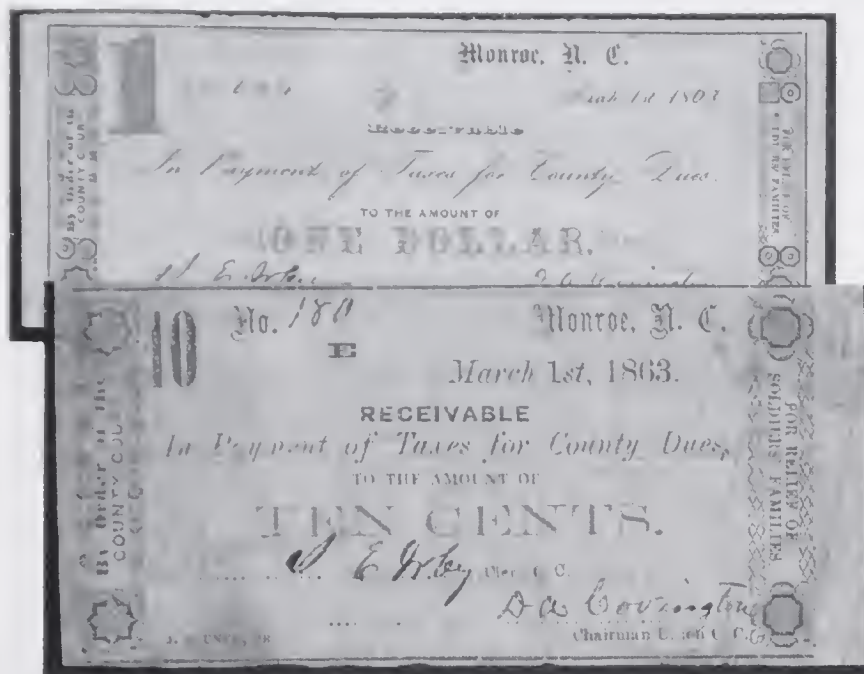 Monroe, N. C.
1863
Receivable
In Payment of Taxes for County Dues.
TO THE AMOUNT OF
ONE DOLLAR.
By Order of the
COUNTY COUR
10
No. 180
Monroe, N. C.
E
March 1st, 1863.
RECEIVABLE
In Payment of Taxes for County Dues,
TO THE AMOUNT OF
TEN CENTS.
E Irby
D A Covington
Chairman
By Order of the
COUNTY COU
FOR RELIEF OF
SOLDIERS' FAMILIES